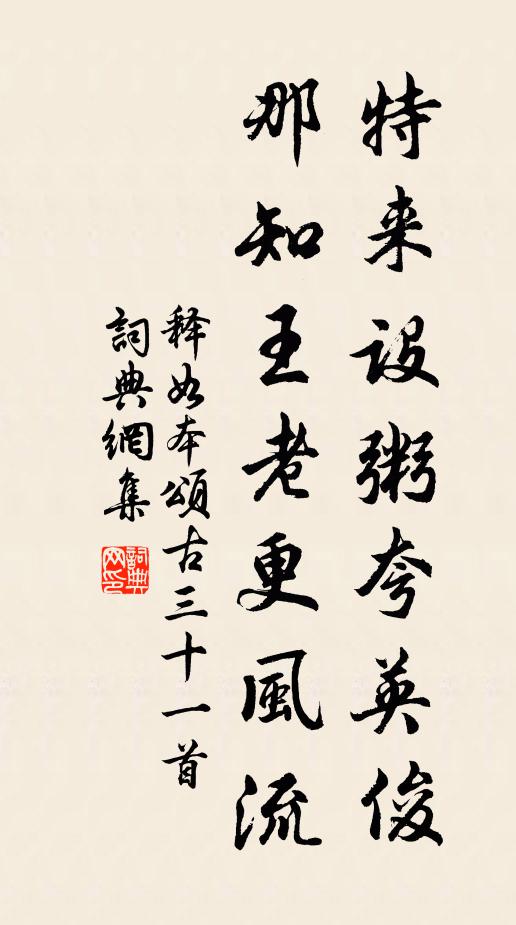 特来设粥夸英俊
那知王老更風流
释如本頌古三十一首
詞典網集
詞典网印